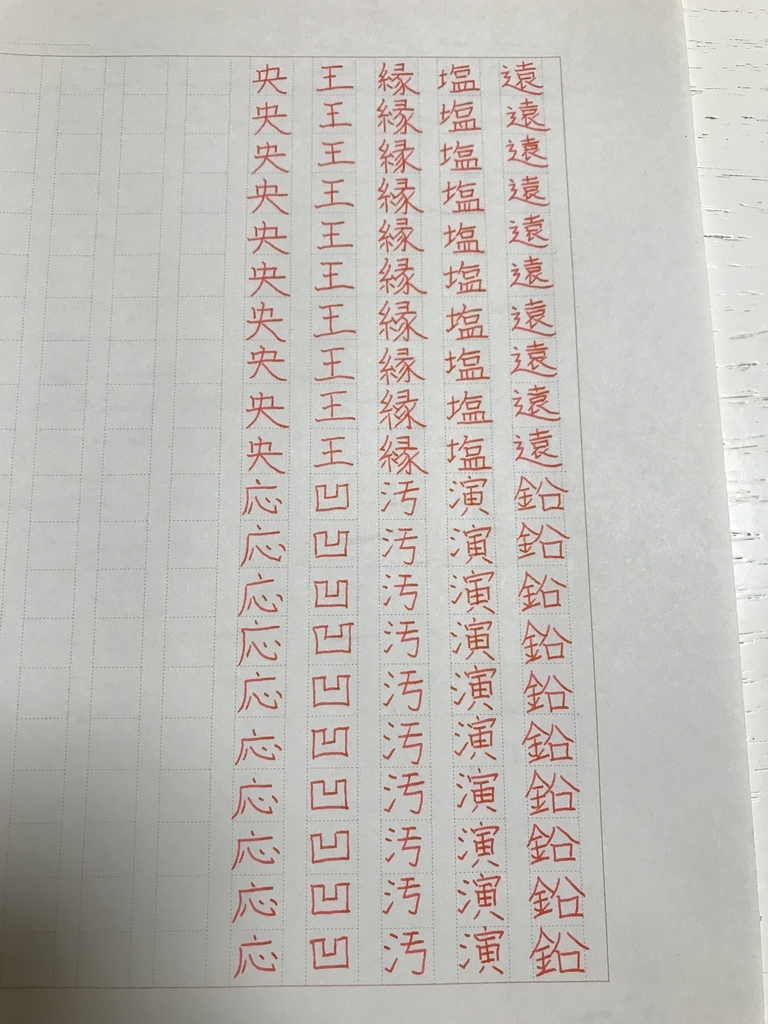 遠遠遠遠遠遠遠遠遠遠鉛鉛鉛鉛鉛鉛鉛鉛鉛鉛
塩塩塩塩塩塩塩塩塩塩演演演演演演演演演演
縁縁縁縁縁縁縁縁縁縁汚汚汚汚汚汚汚汚汚汚
王王王王王王王王王王凹凹凹凹凹凹凹凹凹凹
央央央央央央央央央央応応応応応応応応応応